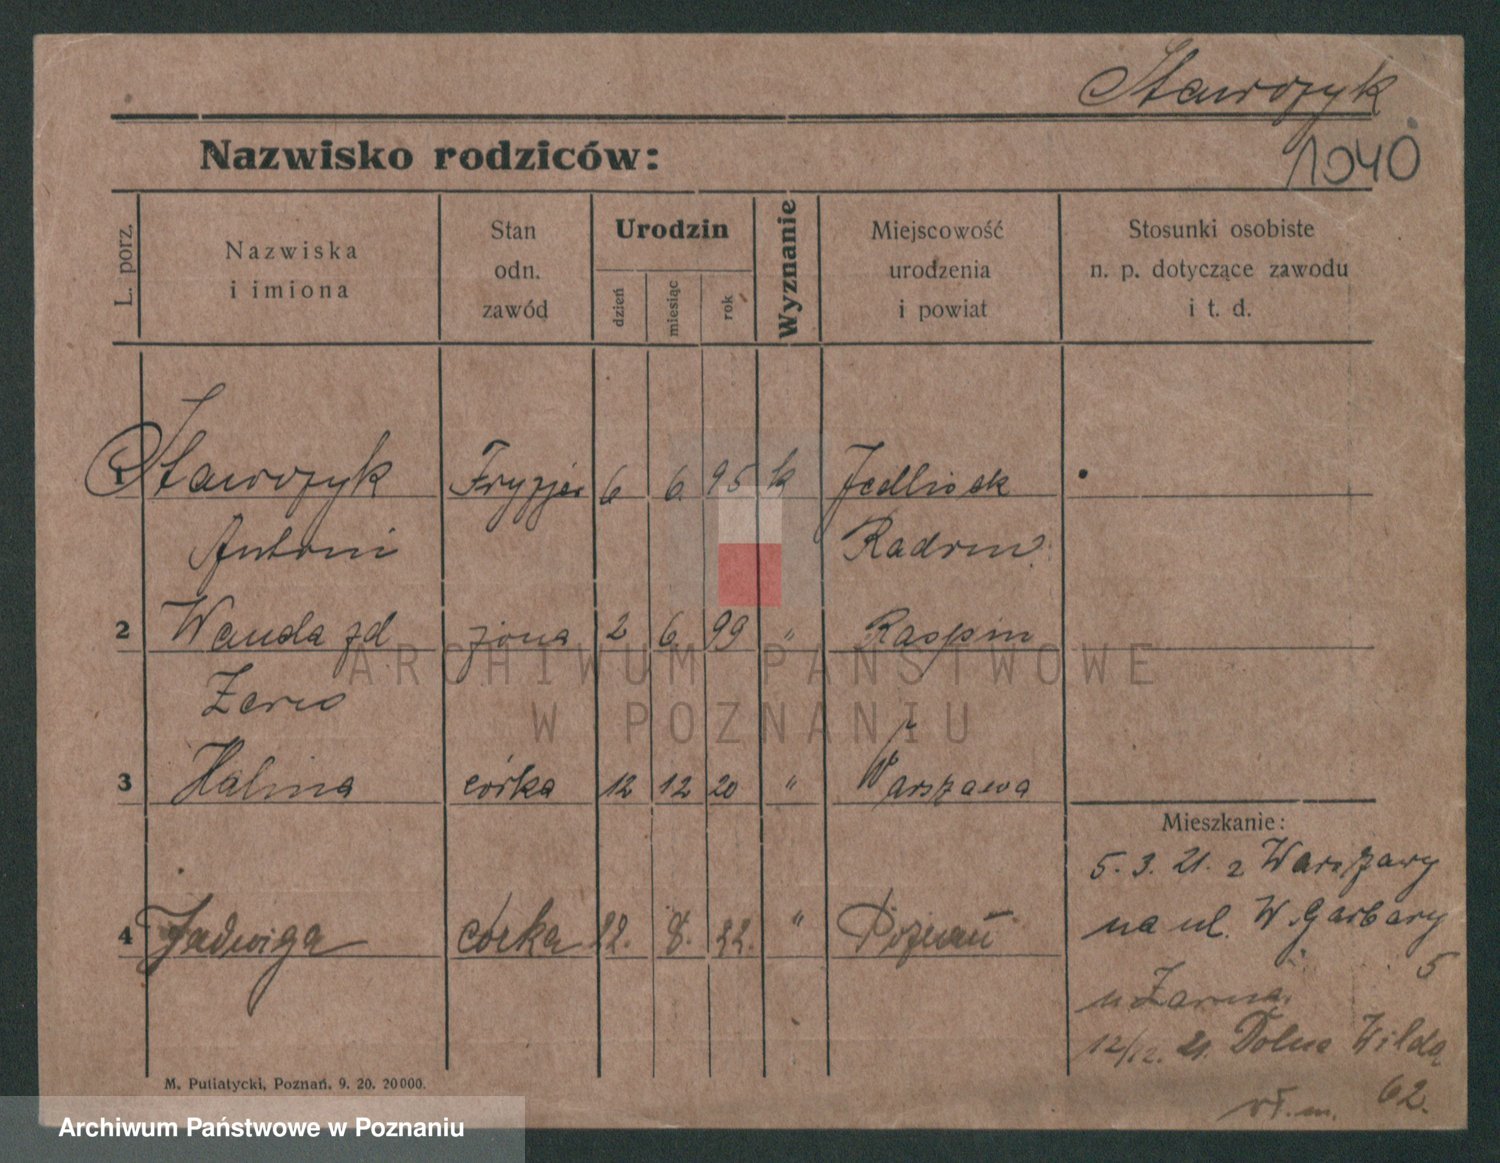 Stawczyk
1040
Nazwisko rodziców:
L. porz.
Nazwiska
i imiona
Stan
odn.
zawód
Urodzin
dzień
miesiąc
rok
Wyznanie
Miejscowość
urodzenia
i powiat
Stosunki osobiste
n. p. dotyczące zawodu
i t. d.
1 Stawczyk Fryzjer 6 6 95 k
Antoni Radom
2 Wanda zd żona 2 6 99 "
3 Halina córka 12 12 20 " Warszawa
Mieszkanie:
5. 3. 21. z Warszawy
na ul. W. Garbary
5
4 Jadwiga córka 22. 8. 22. " Poznań
u Żarna.
12/12. 21. Dolna Wilda
62.
M. Putiatycki, Poznań, 9. 20. 20000.
ARCHIWUM PAŃSTWOWE
W POZNANIU
Archiwum Państwowe w Poznaniu